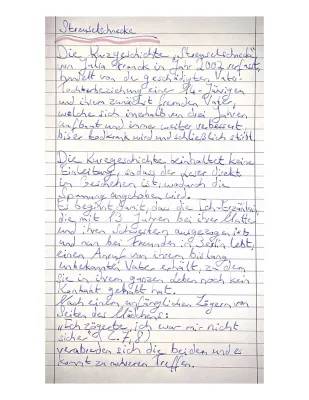 Streuselschnecke
Die Kurzgeschichte „Streuselschnecke"
von Julia Franck im Jahr 2002 verfasst,
handelt von der geschädigten Vater-
Tochterbeziehung einer 14-Jährigen
und ihrem zunächst fremden Vater,
welche sich innerhalb von drei Jahren
aufbaut und immer weiter verbessert
bis er todkrank wird und schließlich stirbt.
Die Kurzgeschichte beinhaltet keine
Einleitung, sodass der Leser direkt
im Geschehen ist, wodurch die
Spannung angehoben wird.
Es beginnt damit, dass die Ich-Erzählerin,
die mit 13 Jahren bei ihrer Mutter
und ihren Schwestern ausgezogen ist
und nun bei Freunden in Berlin lebt,
einen Anruf von ihrem bislang
unbekannten Vater erhält, zu dem
sie in ihrem ganzen Leben noch kein
Kontakt gehabt hat.
Nach einem anfänglichen Zögern von
Seiten des Mädchens:
„Ich zögerte, ich war mir nicht
sicher" (Z. 7,8)
verabreden sich die beiden und es
kommt zu mehreren Treffen.